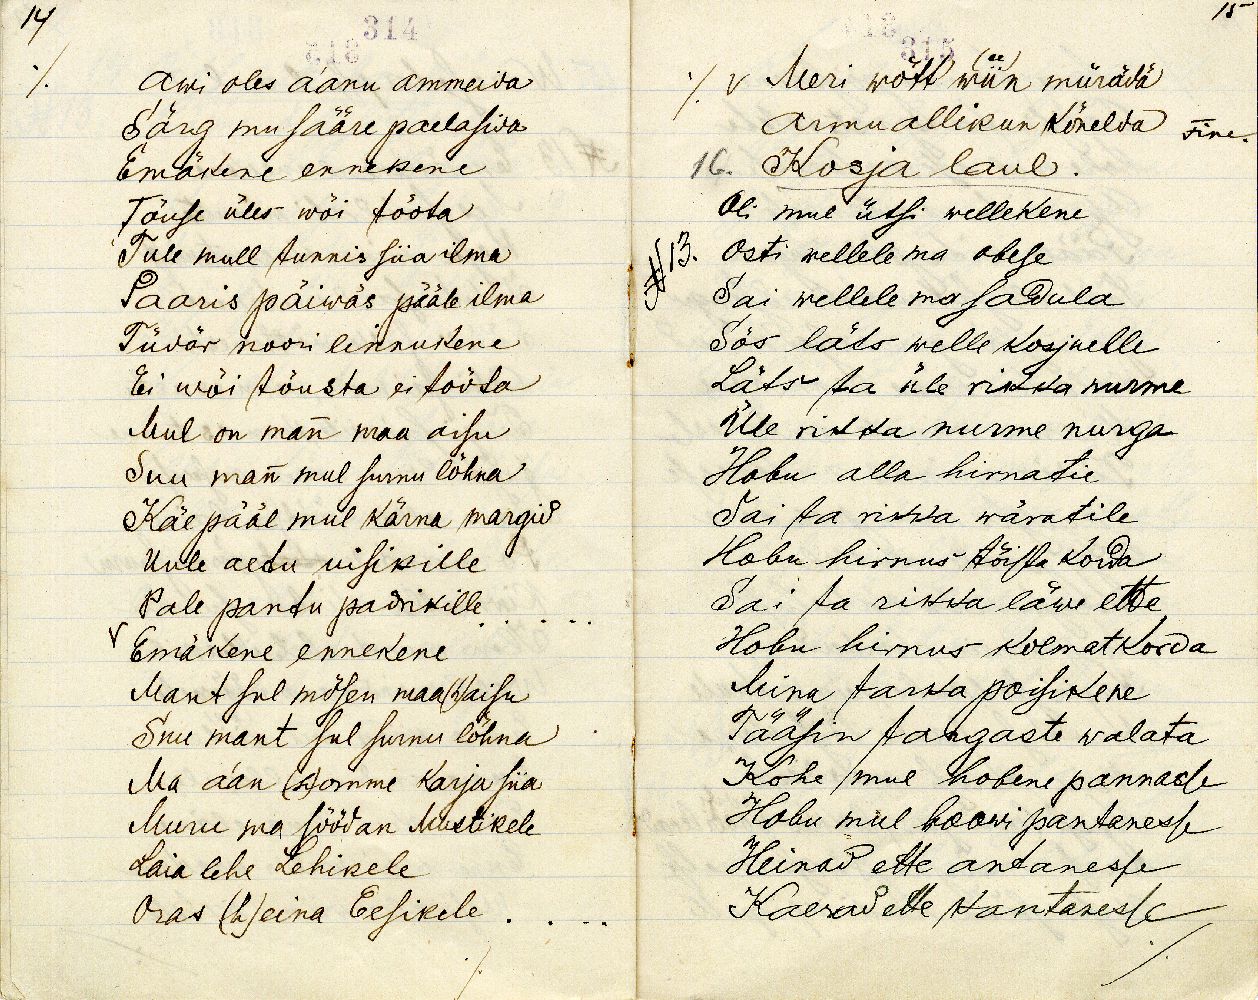 14
314
./.
Awi oles äanu ammeida
Särg mu sääre paelasida
Emäkene ennekene
Töuse üles wöi tööta
Tule mull tunnis siia ilma
Paaris päiwäs pääle ilma
Tüdär noori linnukene
Ei wöi töusta ei tööta
Mul on mañ maa aisu
Suu mañ mul surnu löhna
Käe pääl mul kärna margid
Uule aetu uisikille
Pale pantu padrikille . . . . .
V Emäkene ennekene
Mant sul mösen maa(h)aisu
Suu mant sul surnu löhna
Ma aan (h)omme karja siia
Muru ma söödan Mustikele
Laia lehe Lehikele
Oras (h)eina Eesikele . . . .
./.
15
315
./. V Meri wött wiin (ee) mürädä
Armu allikun könelda Fine.
16. Kosja laul.
Oli mul ütsi wellekene
#13. Osti wellele ma obese
Sai wellele ma sadula
Sös läts welle kosjuelle
Läts ta üle rikka nurme
Üle rikka nurme nurga
Hobu alla hirnatie
Sai ta rikka wäratile
Hobu hirnus töista korda
Sai ta rikka läwe ette
Hobu hirnus kolmatkorda
Mina tarka poisikene
Tääsin tangaste walata
Kohe mul hobene pannasse
Hobu mul hoowi pantanesse
Heinad ette antanesse
Kaerad ette kantanesse
./.